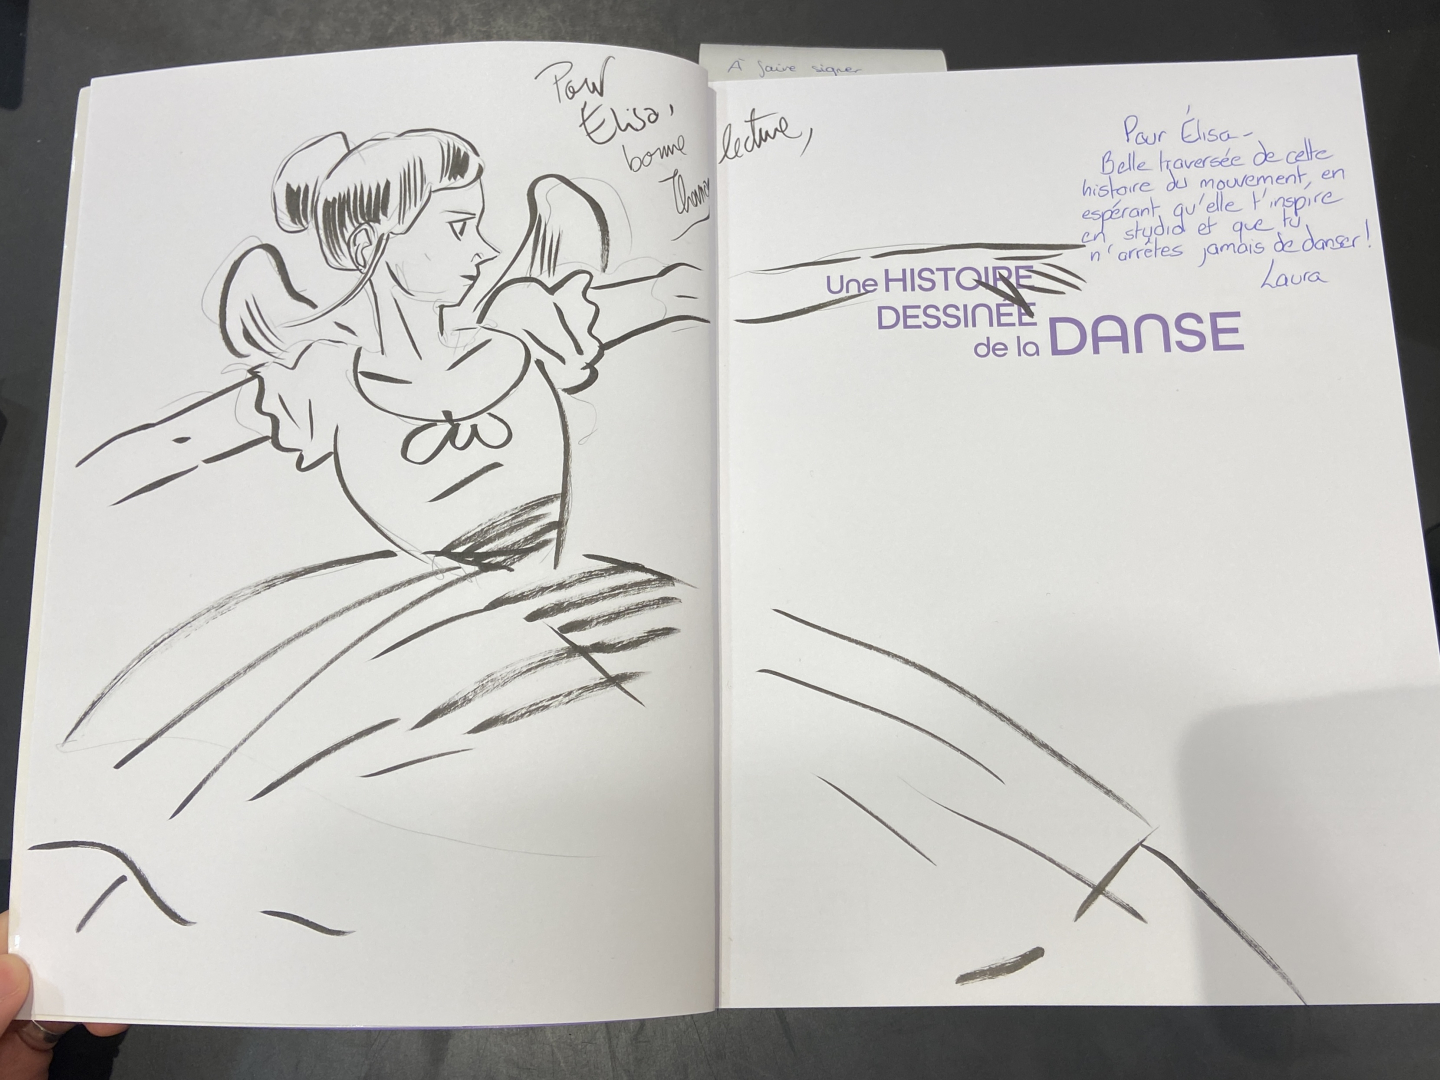 À faire signer
Pour
Élisa,
bonne lecture,
Pour Élisa-
Belle traversée de cette
histoire du mouvement, en
espérant qu'elle t'inspire
en studio et que tu
n'arrêtes jamais de danser!
Laura
Une HISTOIRE
DESSINÉE
de la DANSE